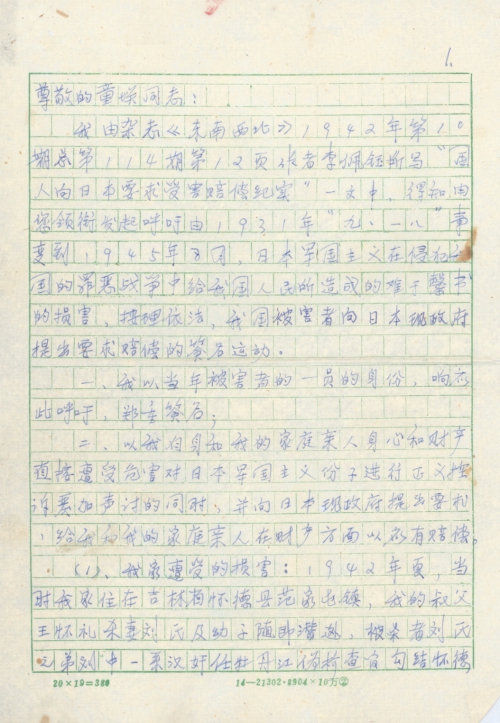 1.
尊敬的童增同志:
我由杂志《东南西北》1942年第10
期总第114期第12页作者李佩钰所写“国
人向日本要求受害赔偿纪实”一文中,得知由
您领衔发起呼吁由1931年“九·一八”事
变到1945年8月,日本军国主义在侵犯我
国的罪恶战争中给我国人民所造成的难于罄书
的损害,按理依法,我国被害者向日本现政府
提出要求赔偿的签名运动。
一、我以当年被害者的一员的身份,响应
此呼吁,郑重签名;
二、以我自身和我的家庭亲人身心和财产
直接遭受危害对日本军国主义份子进行正义性
诉恶加声讨的同时,并向日本现政府提出要求
:给我和我的家庭亲人在财产方面以应有赔偿。
(1)、我家遭受的损害:1942年夏,当
时我家住在吉林省怀德县范家屯镇,我的叔父
王怀礼杀妻刘氏及幼子随即潜逃,被杀者刘氏
之弟刘中一系汉奸任牡丹江伪检查官勾结怀德
20×19=380
14—21302·8904×10万②